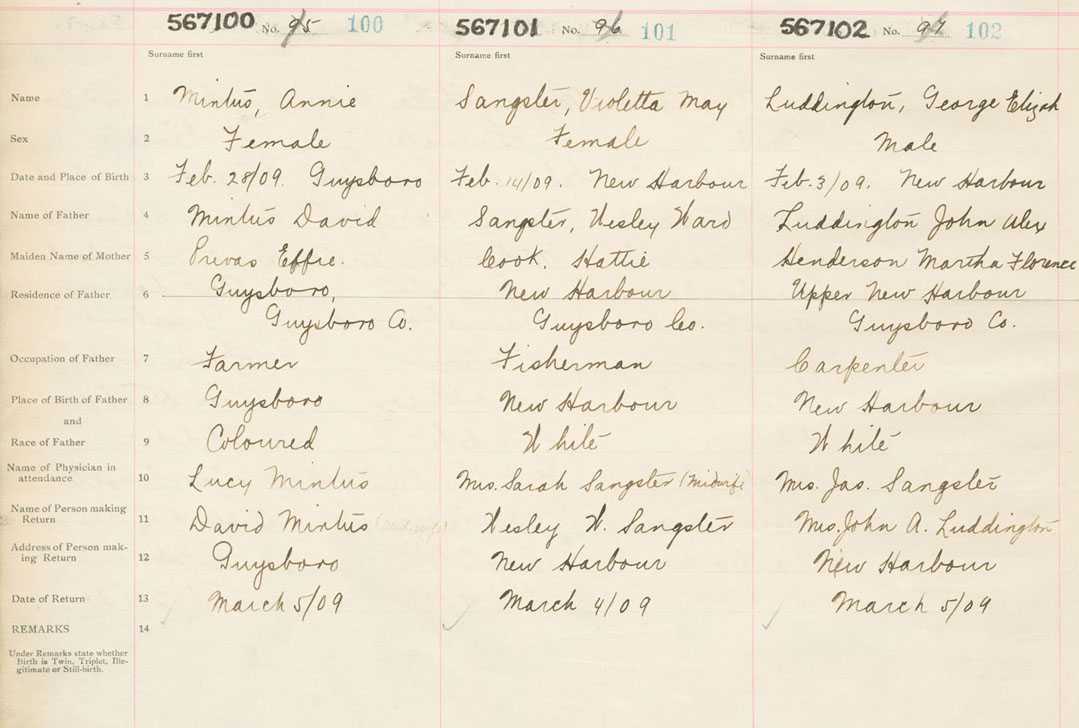 567100 No. 95 100 567101 No. 96 101 567102 No. 97 102
Surname first Surname first Surname first
Name 1 Mintus, Annie Sangster, Violetta May Luddington, George Elizah
Sex 2 Female Female Male
Date and Place of Birth 3 Feb. 28/09. Guysboro Feb. 14/09. New Harbour Feb. 3/09. New Harbour
Name of Father 4 Mintus David Sangster, Wesley Ward Luddington John Alex
Maiden Name of Mother 5 Prevas Effie. Cook, Hattie Henderson Martha Florence
Residence of Father 6 Guysboro, New Harbour Upper New Harbour
Guysboro Co. Guysboro Co. Guysboro Co.
Occupation of Father 7 Farmer Fisherman Carpenter
Place of Birth of Father 8 Guysboro New Harbour New Harbour
and
Race of Father 9 Coloured White White
Name of Physician in
attendance 10 Lucy Mintus Mrs. Sarah Sangster (Midwife) Mrs. Jas. Sangster
Name of Person making
Return 11 David Mintus (mid wife) Wesley W. Sangster Mrs. John A. Luddington
Address of Person mak-
ing Return 12 Guysboro New Harbour New Harbour
Date of Return 13 March 5/09 March 4/09 March 5/09
REMARKS 14
Under Remarks state whether
Birth is Twin, Triplet, Ille-
gitimate or Still-birth.